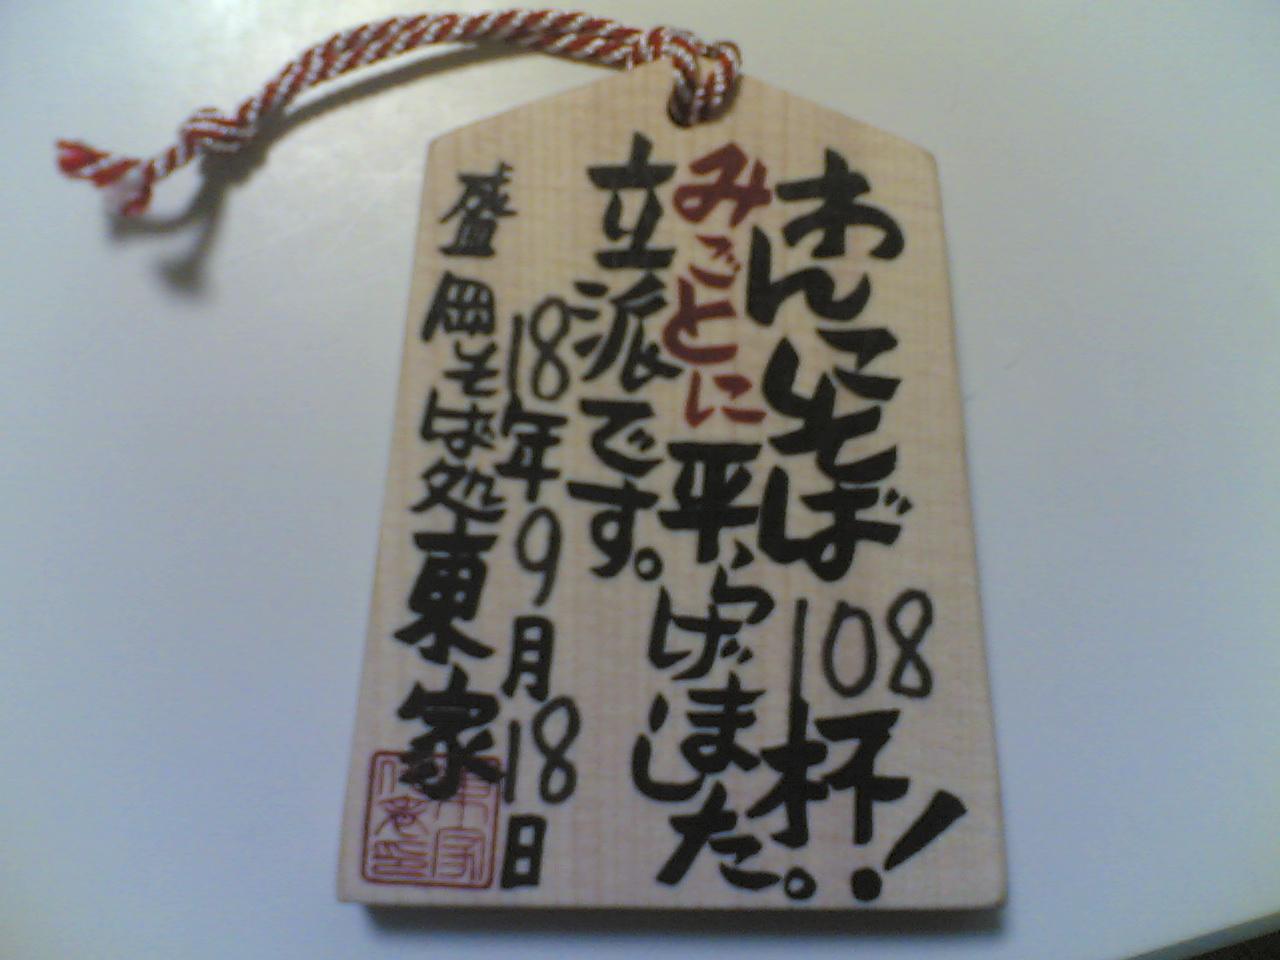 わんこそば108杯!
みごとに平らげました。
立派です。
18年9月18日
盛岡そば処東家